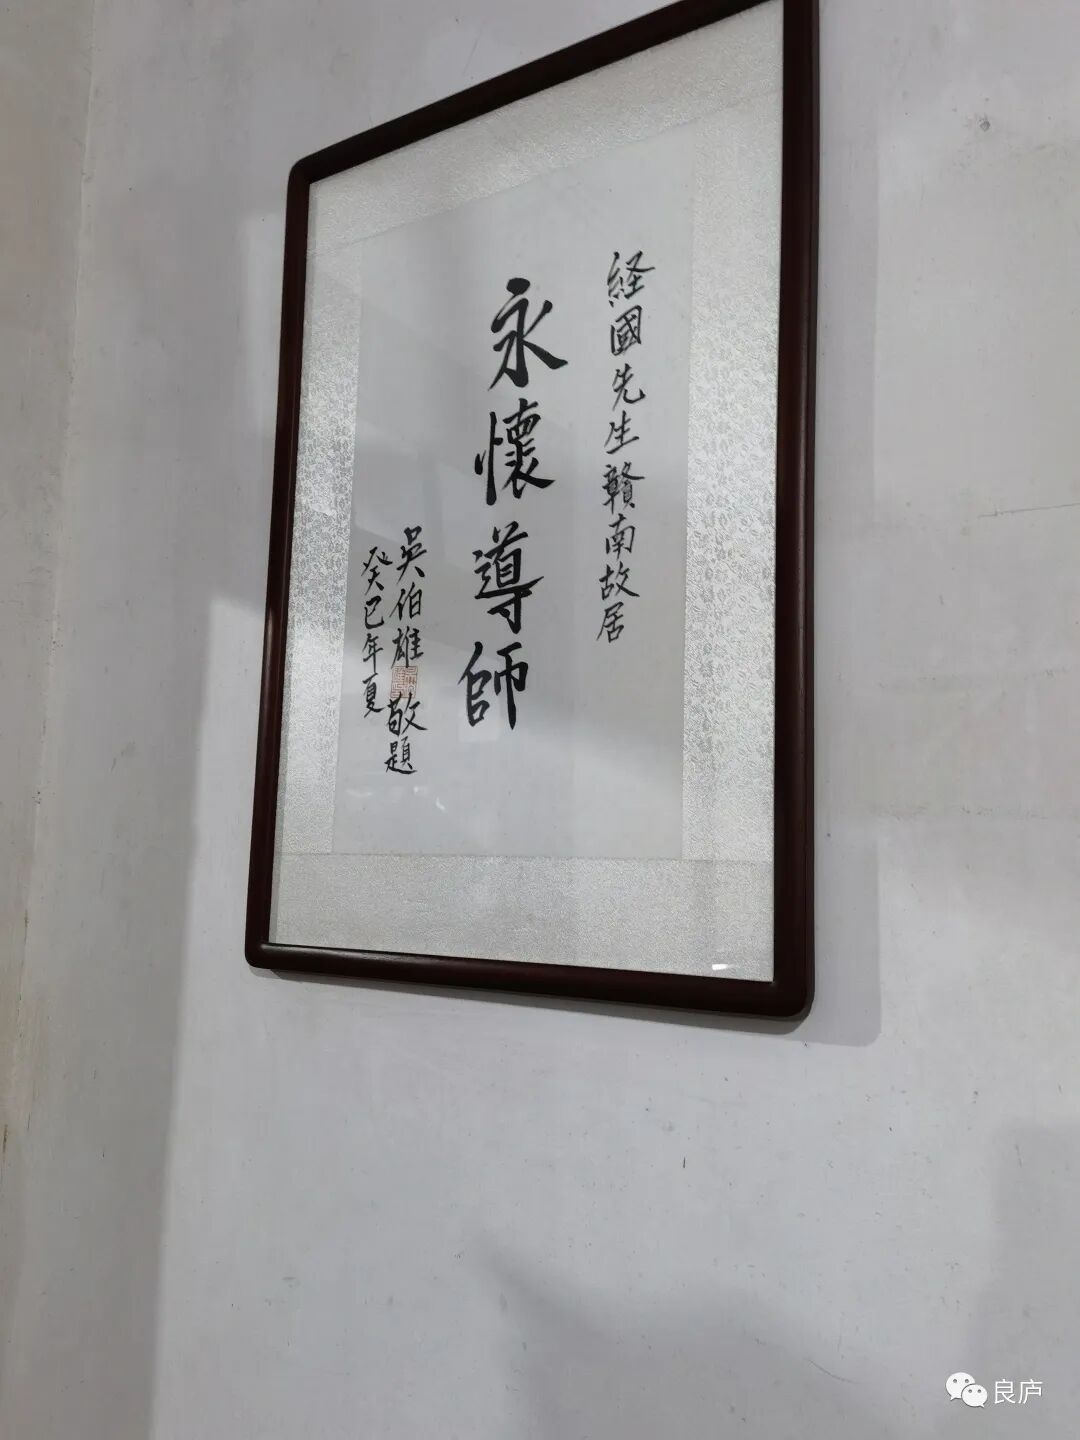 経國先生贛南故居
永懷導師
吳伯雄敬題
癸巳年夏
良庐